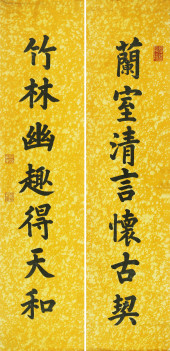 蘭室清言懷古契
竹林幽趣得天和